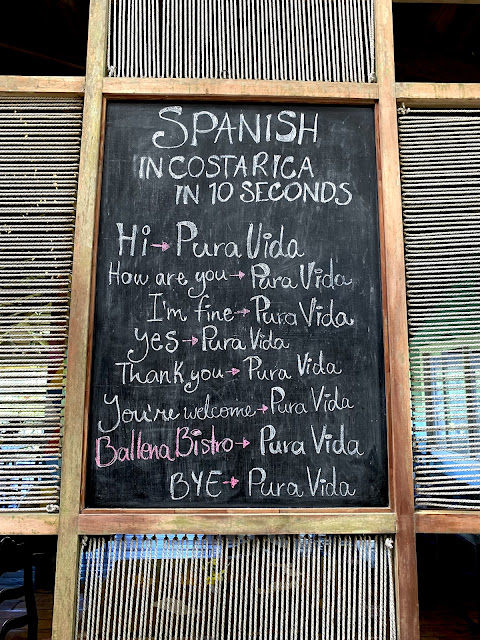 SPANISH
IN COSTA RICA
IN 10 SECONDS
Hi → Pura Vida
How are you → Pura Vida
I'm fine → Pura Vida
yes → Pura Vida
Thank you → Pura Vida
You're welcome → Pura Vida
Ballena Bistro → Pura Vida
BYE → Pura Vida